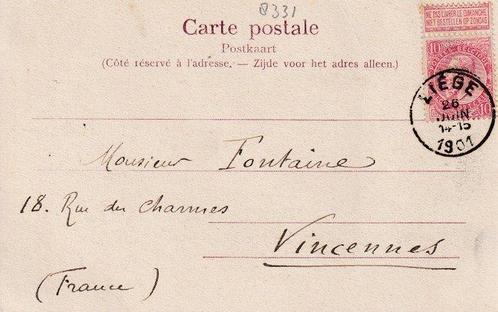 8331
Carte postale
Postkaart
(Côté réservé à l'adresse. — Zijde voor het adres alleen.)
NE PAS LIVRER LE DIMANCHE
NIET BESTELLEN OP ZONDAG
10 10
LIÉGE
26
JUIN
14-15
1901
Monsieur Fontaine
18. Rue du Charmes
Vincennes
(France)